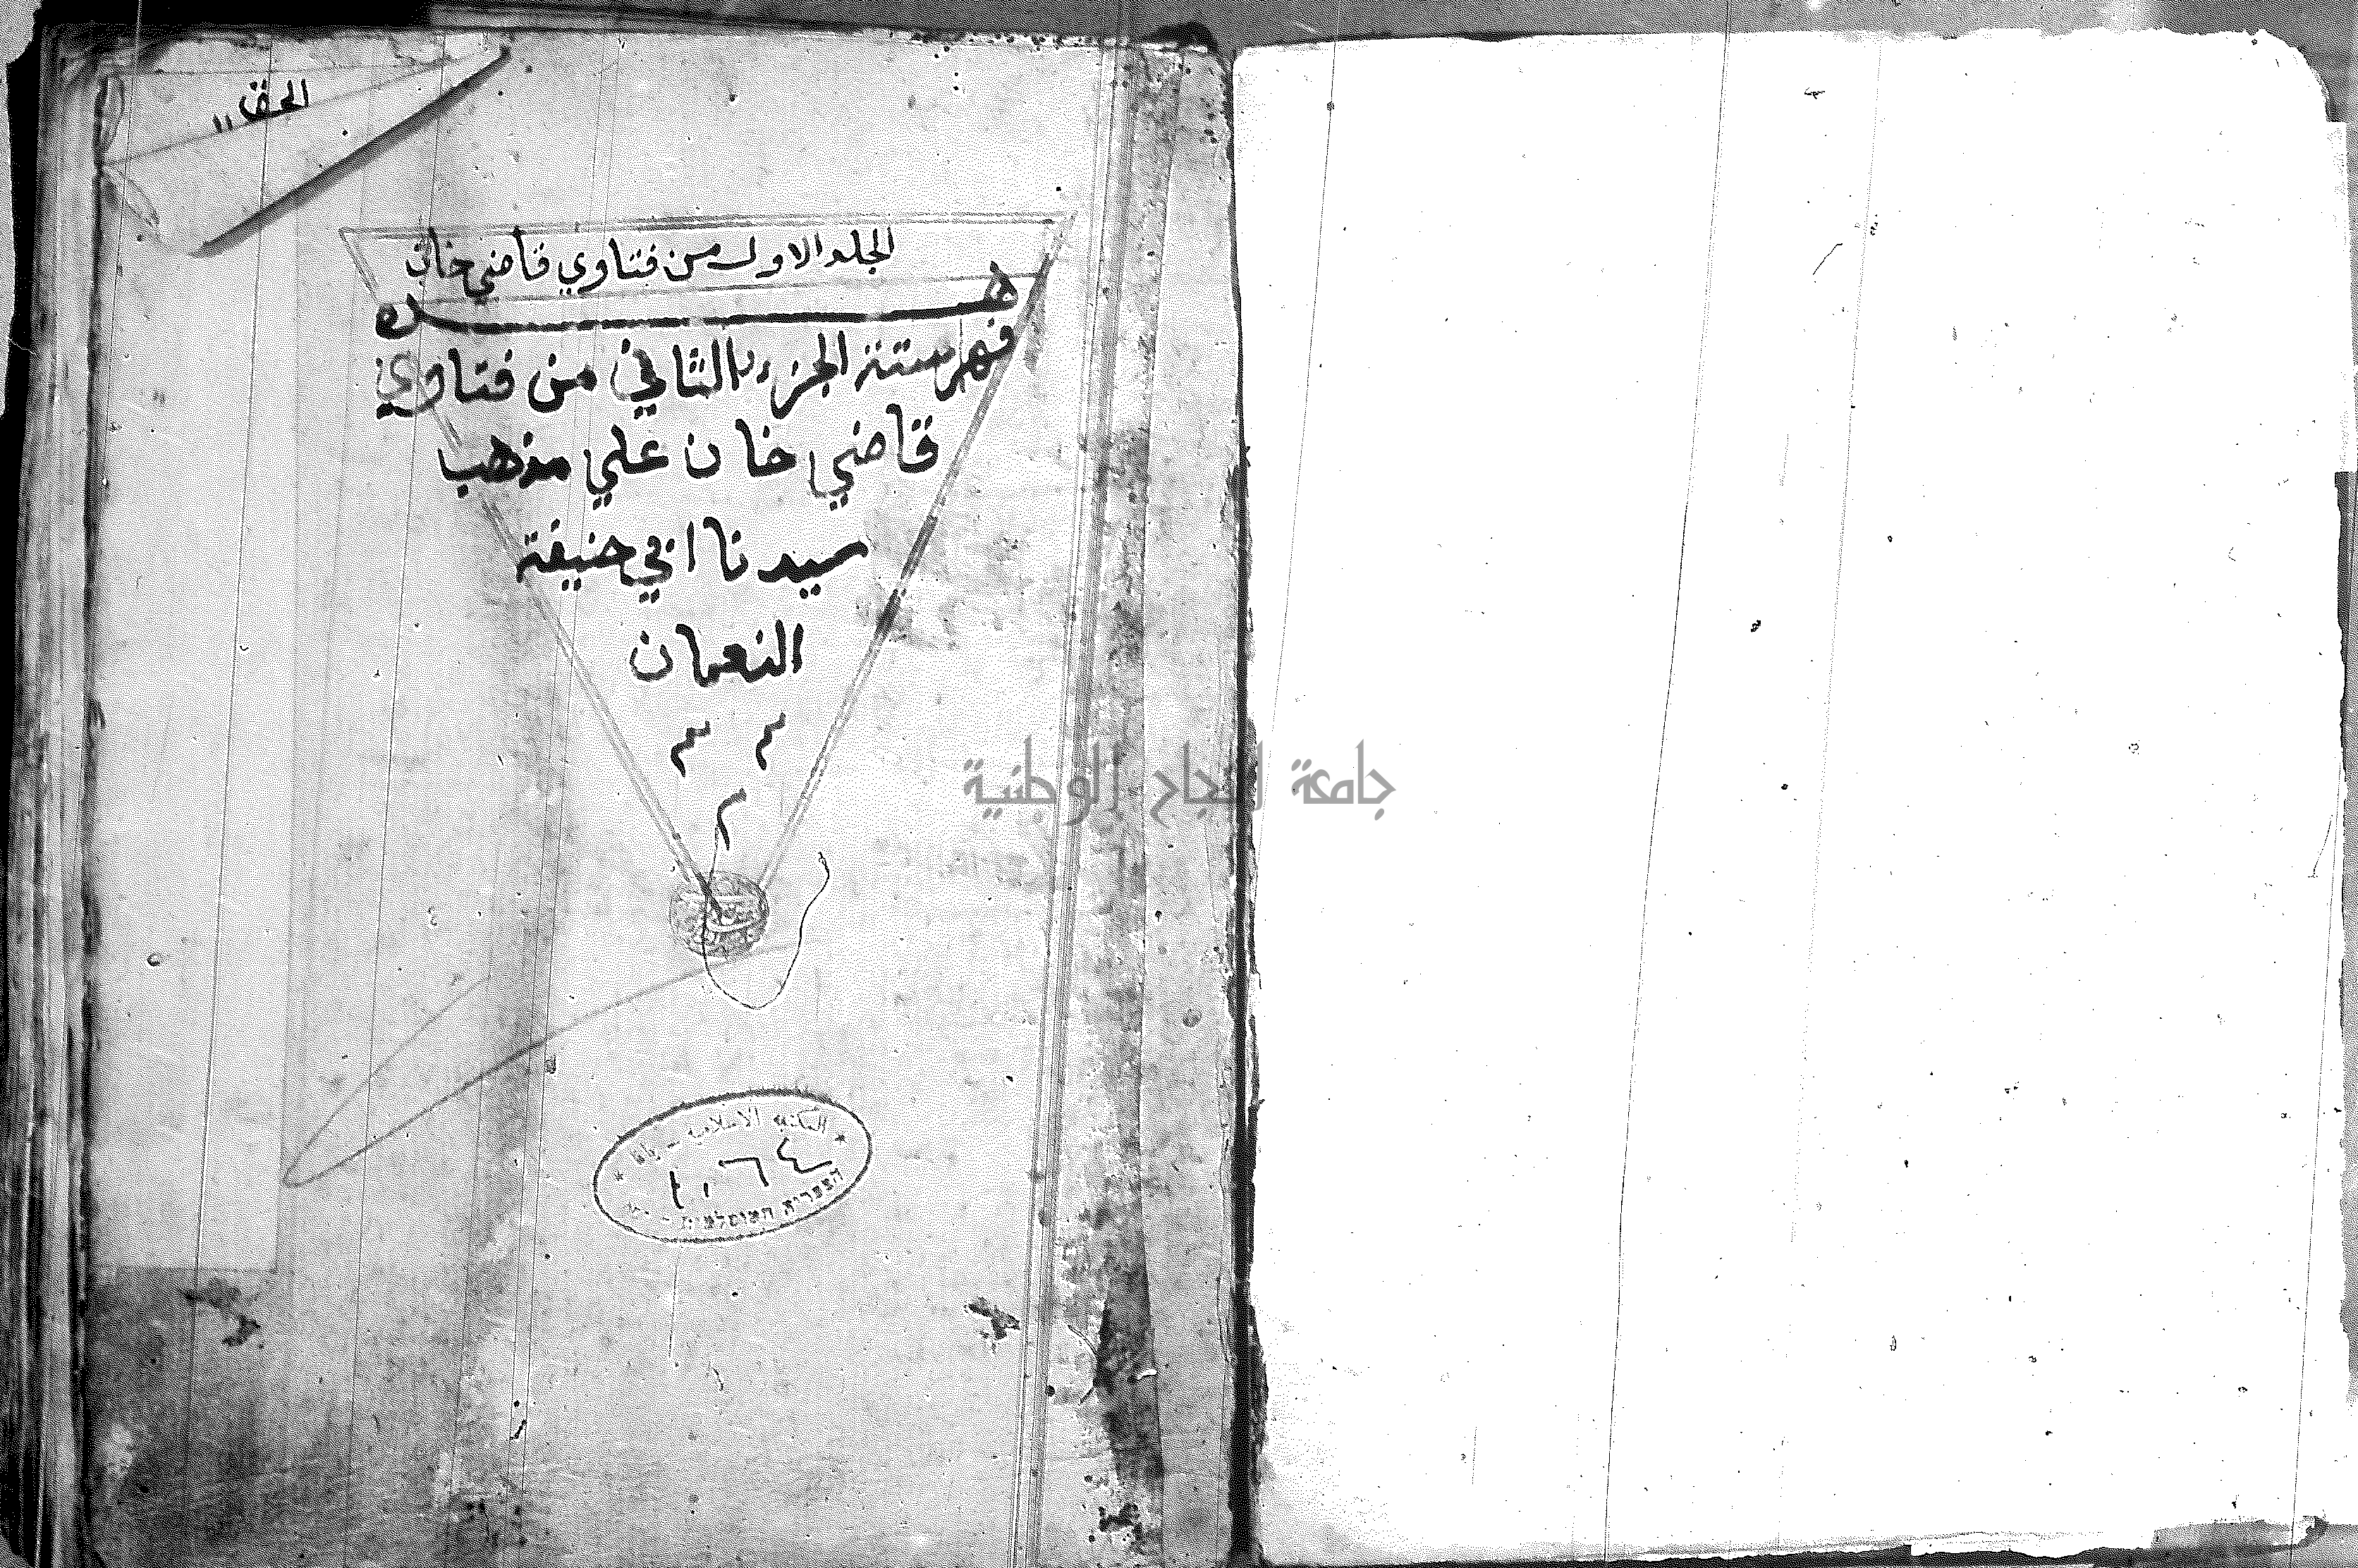 الجلد الاول من فتاوي قاضي خان
هذه
فهرستة الجزء الثاني من فتاوي
قاضي خان علي مذهب
سيدنا ابي حنيفة
النعمان
م م
م
جامعة النجاح الوطنية
المكتبة الاسلامية
١٠٦٤
הספריה המוסלמית